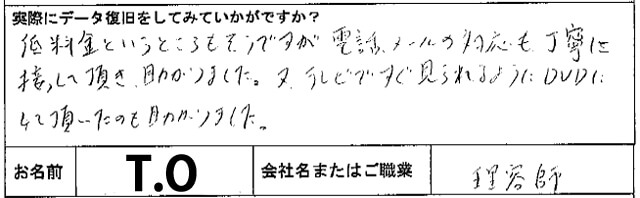 実際にデータ復旧をしてみていかがですか？
低料金というところもそうですが 電話、メールの対応も、丁寧に
接して頂き、助かりました。又、テレビですぐ見られるようにDVDに
して頂いたのも助かりました。
お名前 T.O 会社名またはご職業 理容師